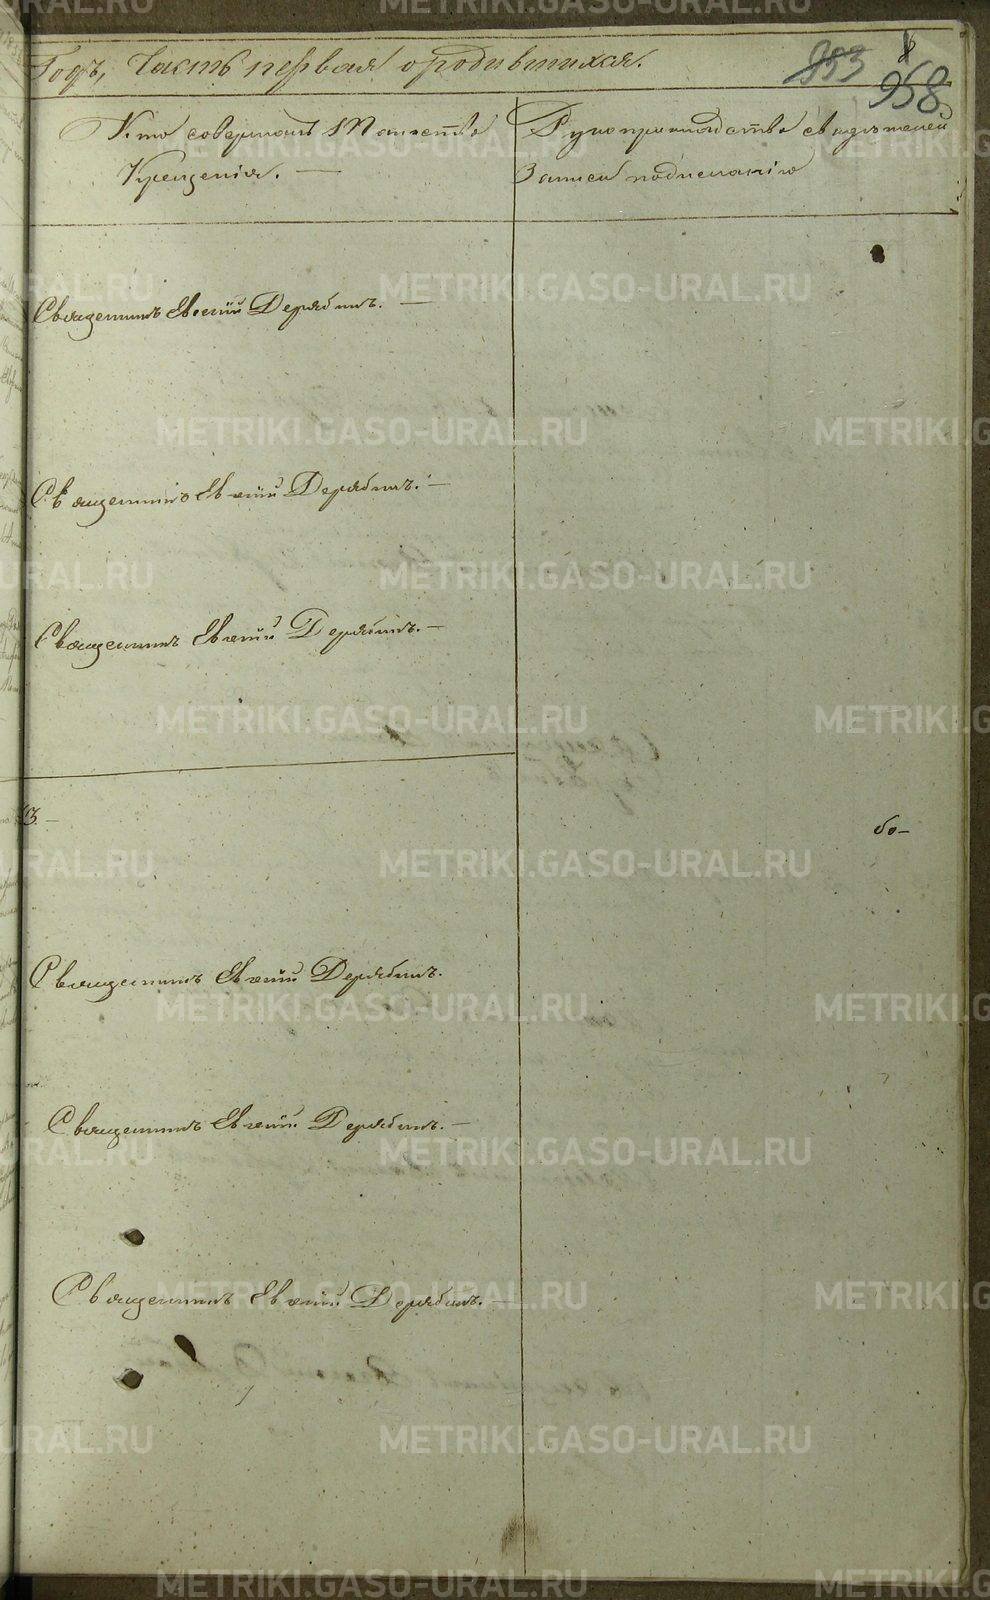 Годъ, Часть первая о родившихся.
953
958
Кто совершалъ Таинство
Крещенія. —
Рукоприкладство свидѣтелей
записи по желанію
Священникъ Евгеній Дерябинъ. —
Священникъ Евгеній Дерябинъ. —
Священникъ Евгеній Дерябинъ. —
бо—
Священникъ Евгеній Дерябинъ.
Священникъ Евгеній Дерябинъ. —
Священникъ Евгеній Дерябинъ. —
METRIKI.GASO-URAL.RU